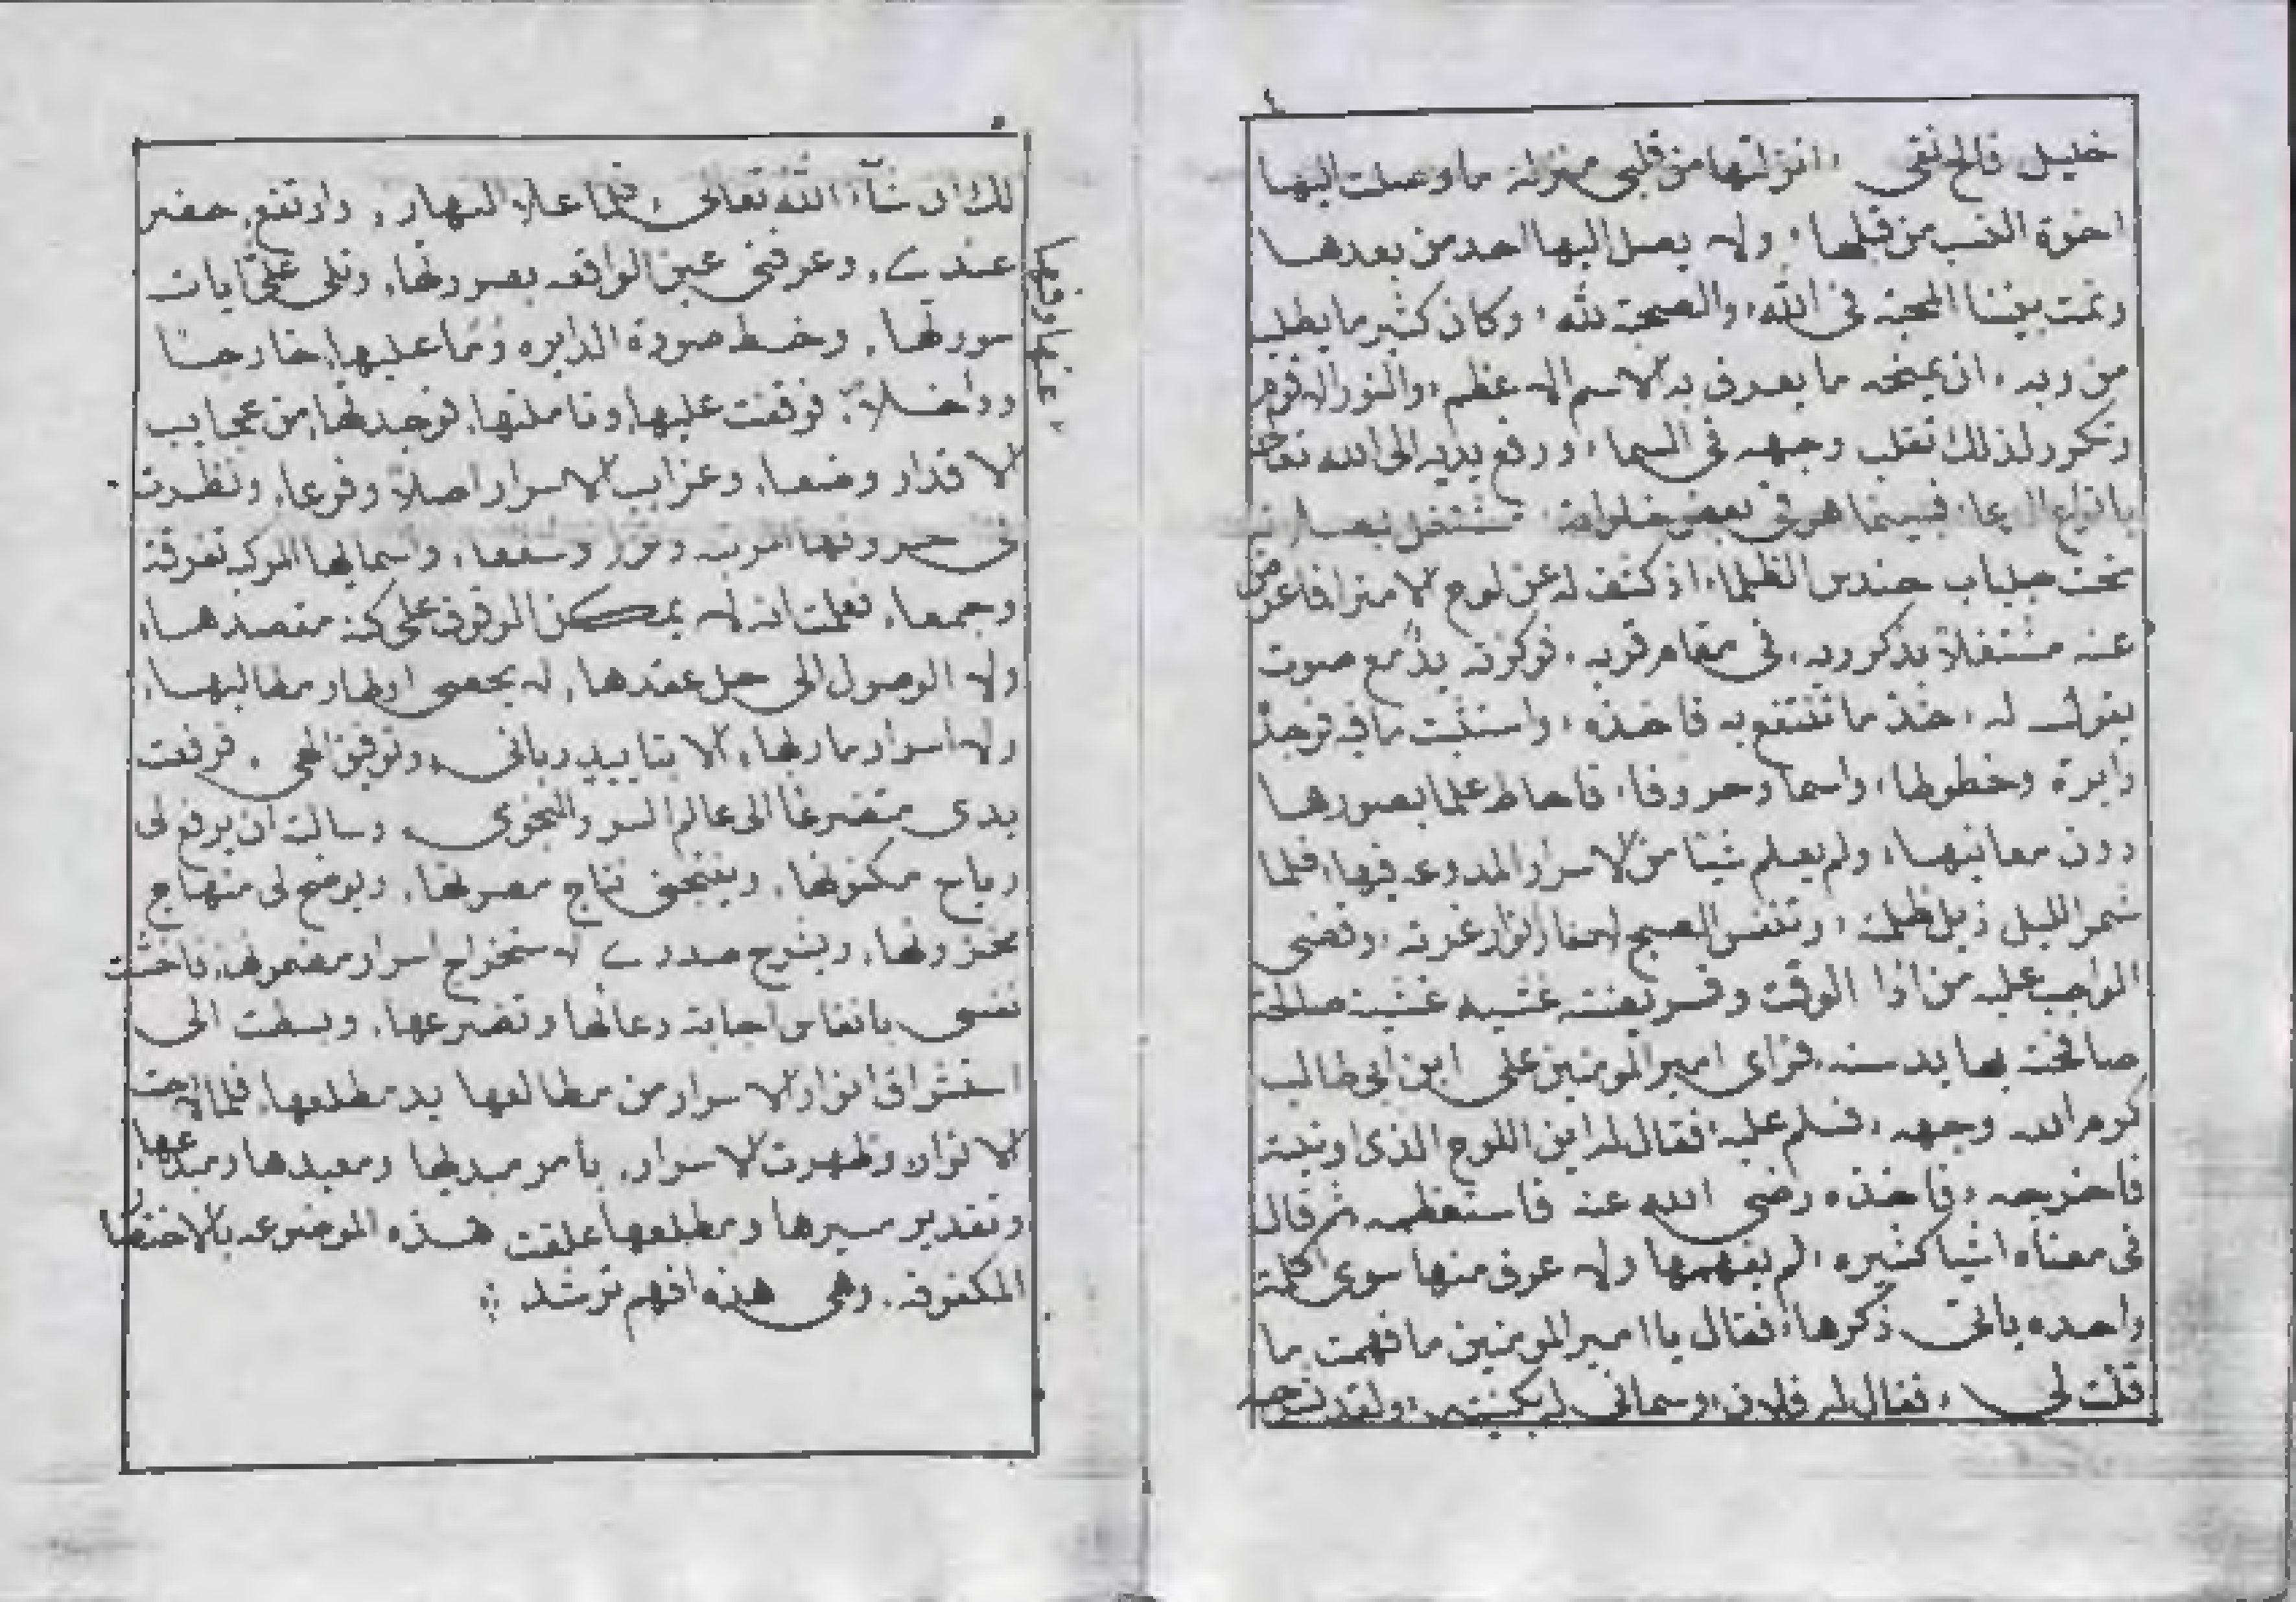 ٤
خليل فالح تقى انزلتها من قلبى منزلة ما وصلت اليها
اخوة النسب من قبلها ولا يصل اليها احد من بعدها
وتمت بيننا المحبة فى الله والصحبة لله وكان كثير ما يطلب
من ربه ان يمنحه ما يعرف به الاسم الاعظم والنور الاقوم
وتكرر لذلك تقلب وجهه فى السما ورفع يديه الى الله تعالى
بانواع الدعا فبينما هو فى بعض خلواته
تحت جلباب حندس الظلما اذ كشف له عن لوح فاعرض
عنه مشتغلا بذكر ربه فى مقام قربه فوكزته يد مع صوت
يقول له خذ ما تنتفع به فاخذه واستثبت ما فيه فوجد
دايرة وخطوطا واسما وحروفا فاحاط علما بصورها
دون معانيها ولم يعلم شيئا من الاسرار المدوعه فيها فلما
شمر الليل ذيل ظلمته وتنفس الصبح انوار غرته وقضى
الواجب عليه من اذا الوقت وفريضته غشيه غشية صالحة
صافحت بها يد سنه فراى امير المومنين على ابن ابى طالب
كرم الله وجهه فسلم عليه فقال له اين اللوح الذى اوتيته
فاخرجه فاخذه رضى الله عنه فاستعظمه ثم قال
فى معناه اشيا كثيره لم يفهمها ولا عرف منها سوى كلمة
واحده ياتى ذكرها فقال يا امير المومنين ما فهمت ما
قلت لى فقال له فلان وسمانى له بكنيتى
لك ان شآء الله تعالى فلما علا النهار وارتفع حضر
عندى وعرفنى عين الواقعه بصورتها وتلى على ايات
سورتها وخط صورة الدايره وما عليها خارجا
وداخلا فوقفت عليها وتاملتها فوجدتها من عجايب
الاقدار وضعا وغرايب الاسرار اصلا وفرعا ونظرت
فى حروفها وترا وشفعا واسمايها المركبه تفرقة
وجمعا فعلمت انه لا يمكن الوقوف على كنه مقصدها
ولا الوصول الى حل عقدها مطالبها
ولا اسرار ماربها الا بتاييد ربانى وتوفيق الهى فرفعت
يدى متضرعا الى عالم السر والنجوى وسالت ان يرفع لى
رتاج مكنونها ويفتح ويوضح لى منهاج
مخزونها ويشرح صدرى لاستخراج اسرار مضمونها
نفسى بانفاس اجابة دعايها وتضرعها وبسطت الى
استشراق انوار الاسرار من مطالعها يد مطلعها فلما لاحت
الانوار وظهرت الاسرار بامر مبديها ومعيدها ومبدعها
وتقدير مسيرها ومطلعها علقت هذه الموضوعه بالاختصار
المكنوفه وهى هذه افهم ترشد